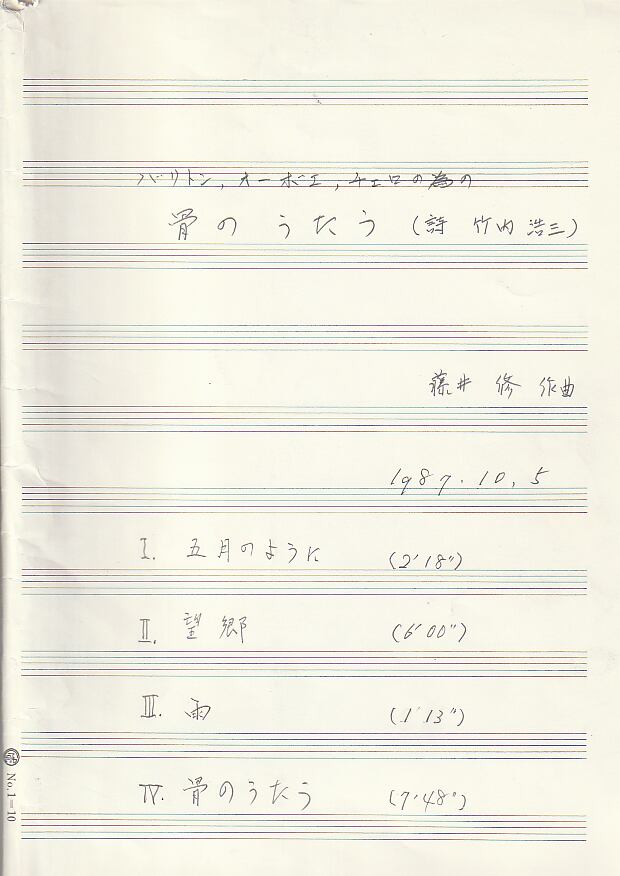 バリトン, オーボエ, チェロの為の
骨のうたう (詩 竹内浩三)
藤井 修 作曲
1987.10.5
I. 五月のように (2'18")
II. 望郷 (6'00")
III. 雨 (1'13")
IV. 骨のうたう (7'48")
No. 1-10